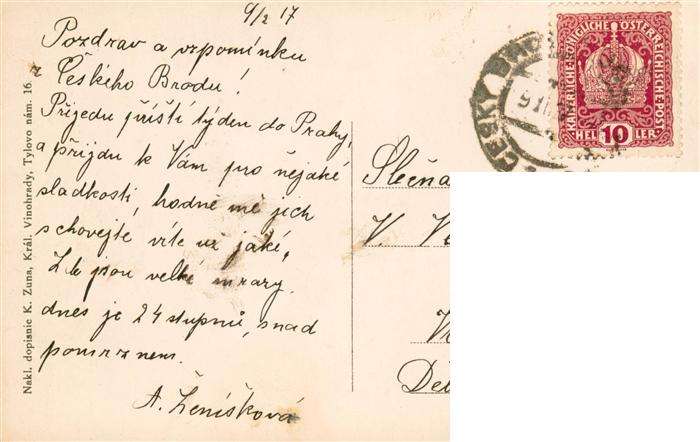 9/2 17
Pozdrav a vzpomínku
z Českého Brodu!
Přijedu příští týden do Prahy,
a přijdu k Vám pro nějaké
sladkosti, hodně mě jich
schovejte, víte už jaké,
Zde jsou velké mrazy.
dnes je 24 stupnů, snad
pomrznem.
A. Ženíšková
Nakl. dopisnic K. Zuna, Král. Vinohrady, Tylovo nám. 16
KAISERLICHE KÖNIGLICHE ÖSTERREICHISCHE POST
HELLER 10
ČESKÝ BROD
Slečna
V.